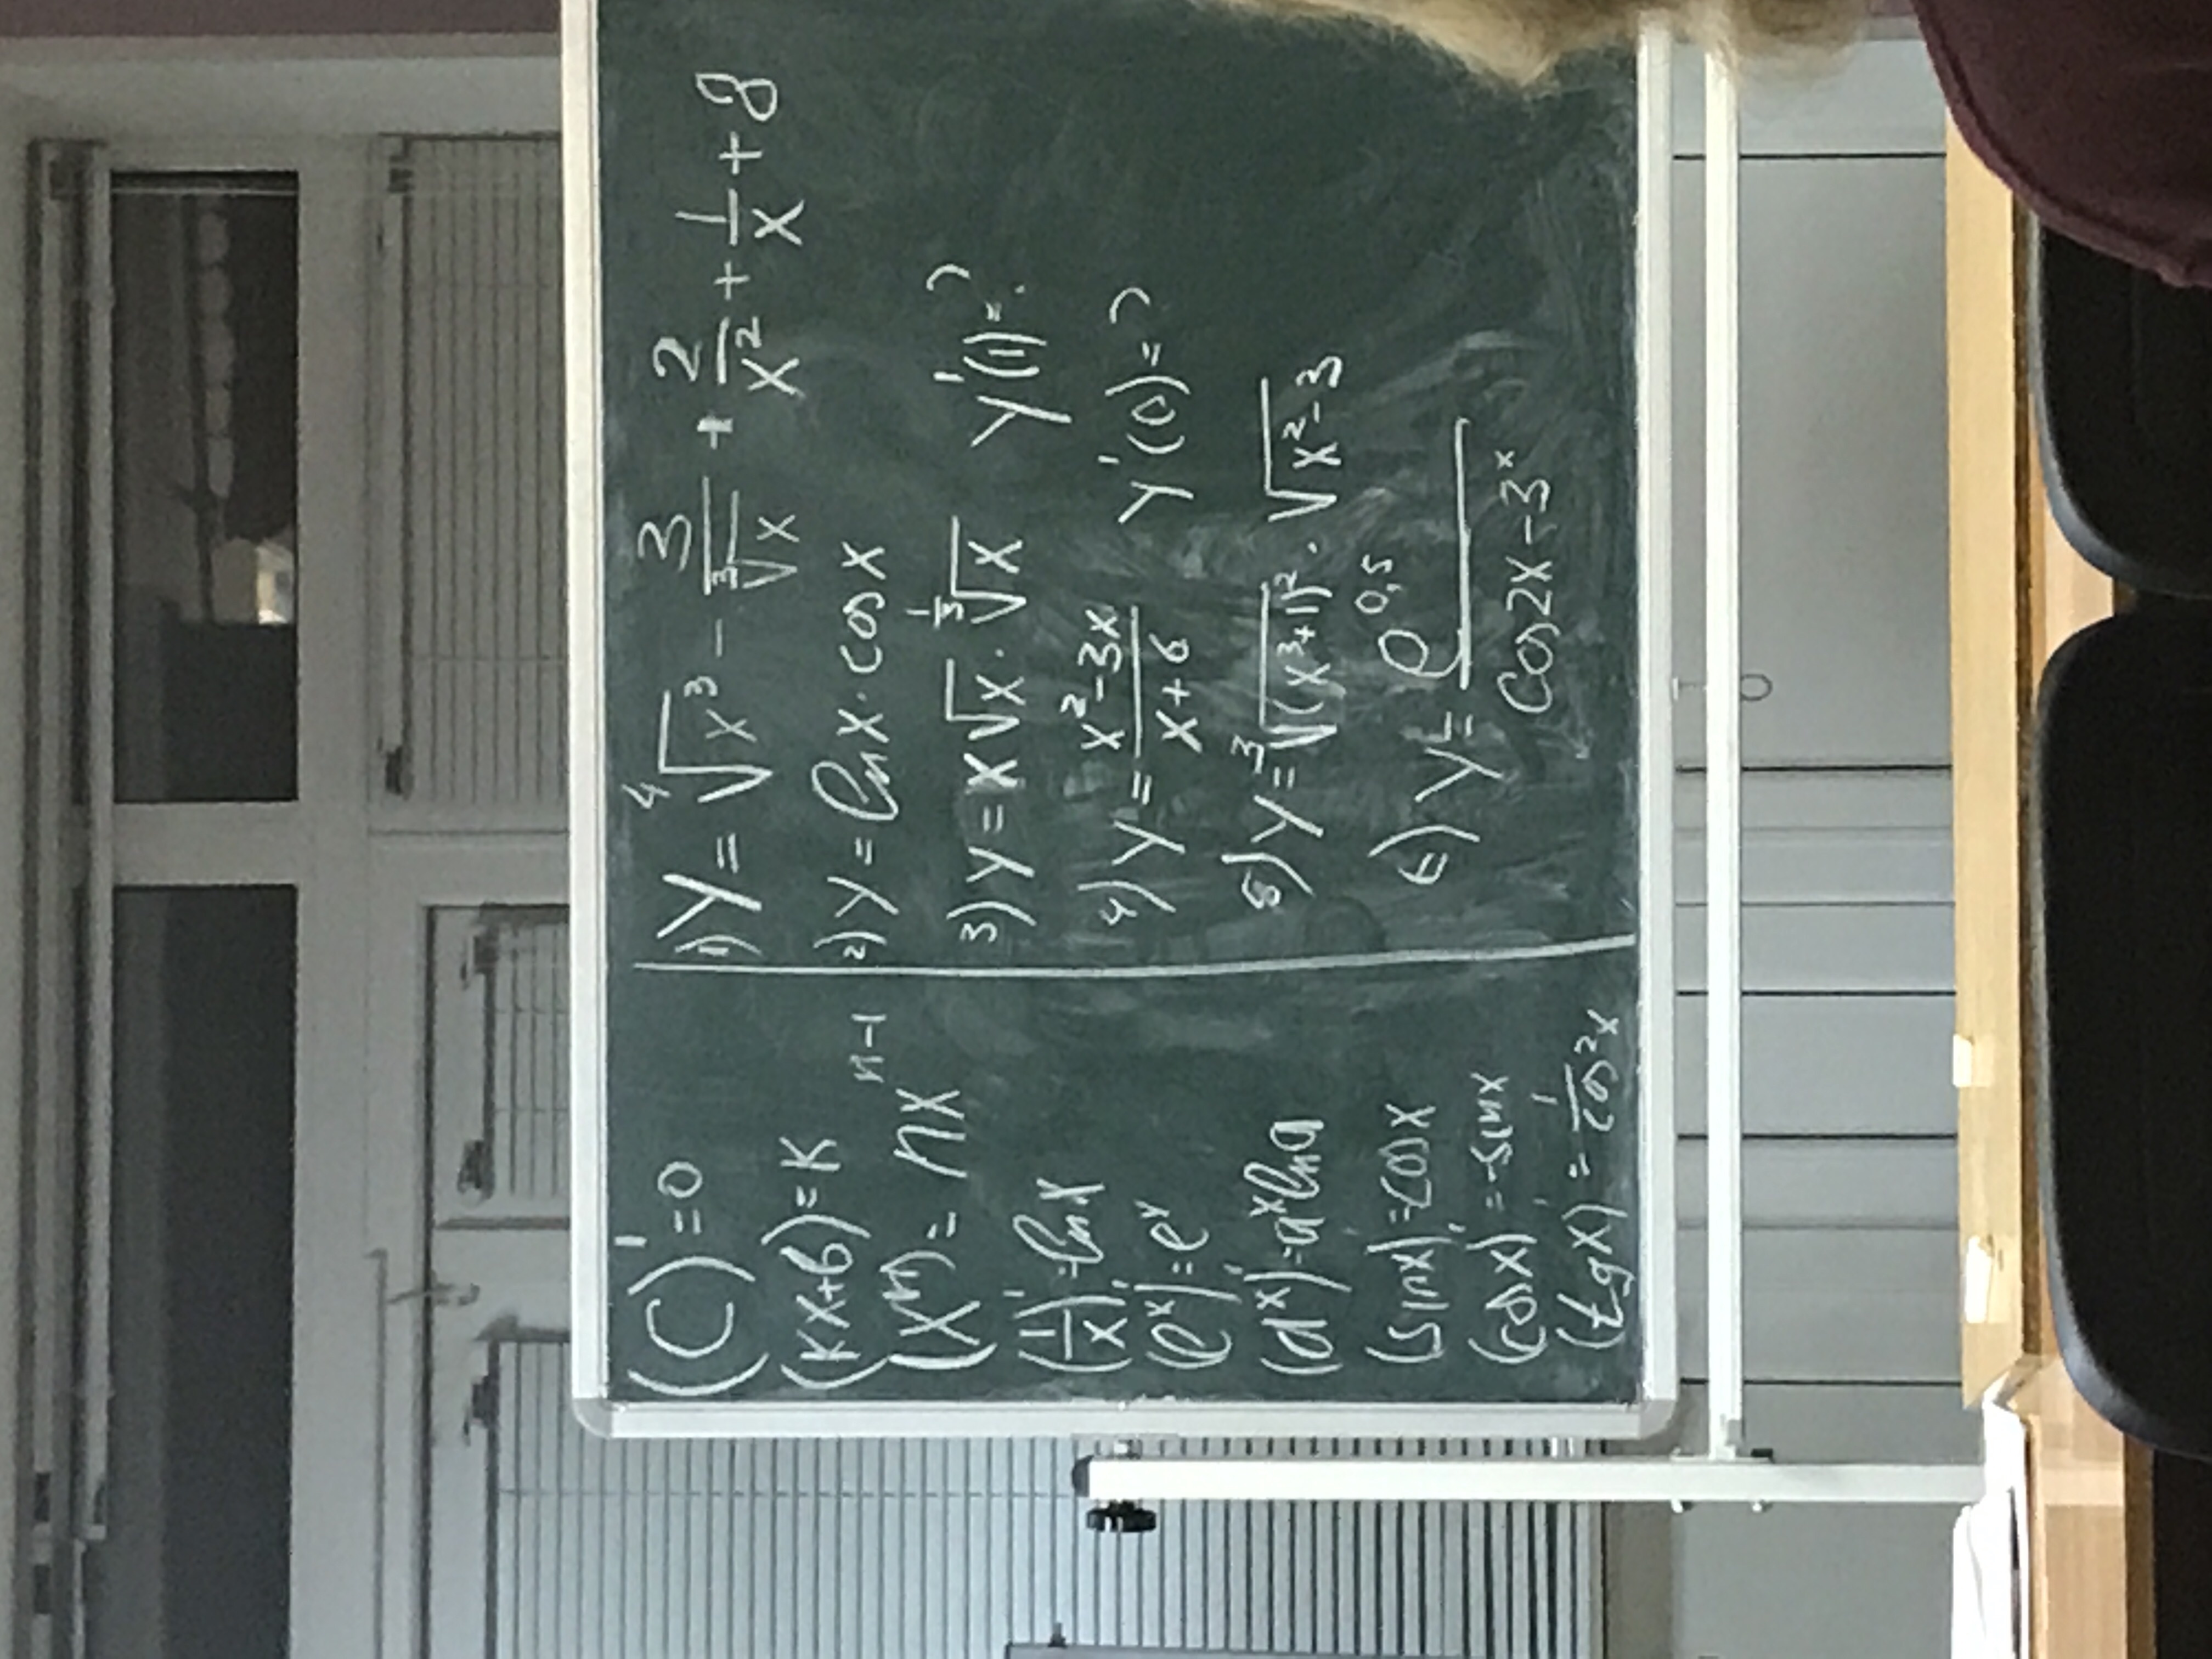 (C)' = 0
(kx+b) = k
(xⁿ) = nxⁿ⁻¹
(1/x)' = ln x
(eˣ)' = eˣ
(aˣ)' = aˣ ln a
(sin x)' = cos x
(cos x)' = -sin x
(tg x)' = 1/cos²x
1) y = ⁴√x³ - 3/³√x + 2/x² + 1/x + 8
2) y = ln x · cos x
3) y = x√x · ^(1/3)√x y'(1) = ?
4) y = (x²-3x)/(x+6) y'(0) = ?
5) y = ³√(x³+1)² · √x²-3
6) y = e^0,5/(cos2x-3ˣ)